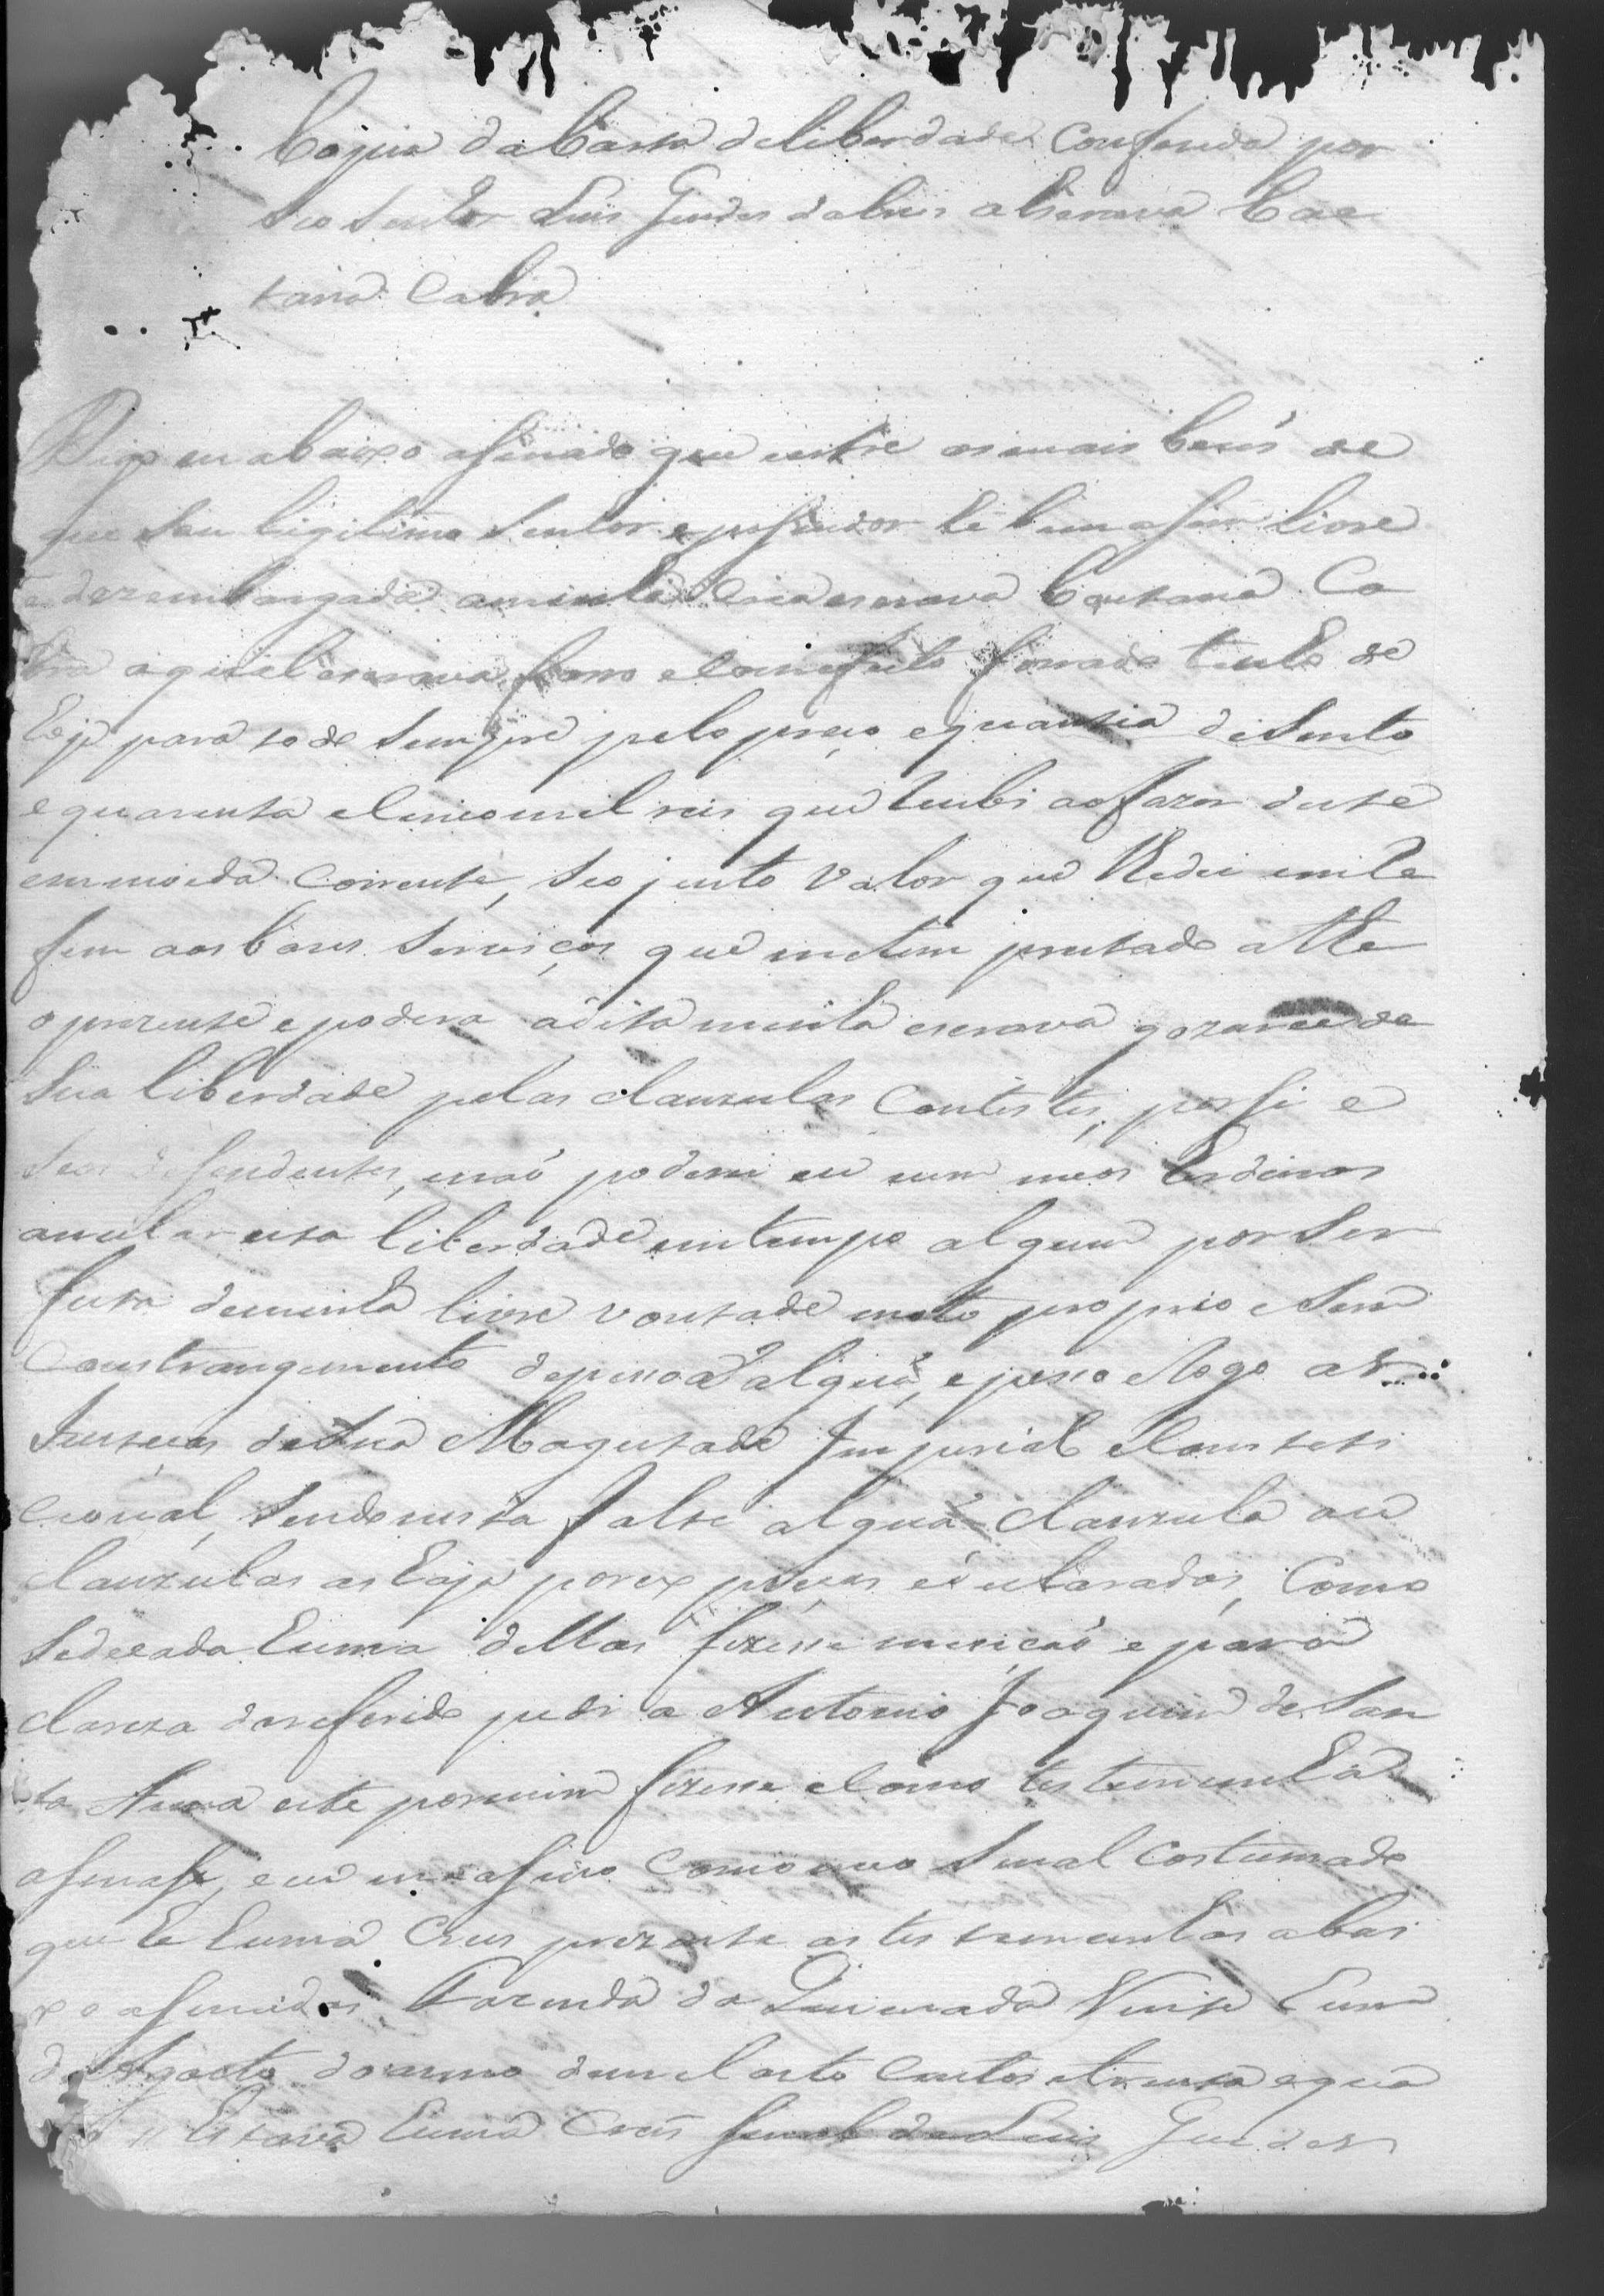 Copia da Carta de liberdade Conferida por
seo Senhor Luis Guedes dalves a Escrava Cae
tana Cabra
Digo eu abaixo asinado que entre os mais bens de
que Sou ligitimo Senhor e posuidor he bem asim livre
e dezembargada a minha escrava Caetana Ca
bra a qual escrava forro e como forrado tenho de
hoje para todo Sempre pelo preso e quantia de Sento
e quarenta e Sinco mil reis que recebi ao fazer deste
em moeda Corrente, Seo justo Valor que Redusi em Re
fem aos bons Serviços que me tem prestado athe
o prezente e podera a dita minha escrava gozarce de
Sua liberdade pelas clauzulas Contestes, por si e
Seos desendentes, e naõ poderei eu nem meos Erdeiros
anular esta liberdade em tempo algum por Ser
feita de minha livre vontade moto proprio e Sem
Constrangimento de pesoa algũa, e peso e Rogo as
Justiças de Sua Magestade Imperial e Constetu
cional, Sendo nesta falte algũa clauzula ou
clauzulas as haja por expreças e declaradas, Como
Se de cada huma dellas fizesse mençaõ e para
clareza do referido pedi a Antonio Joaquim de San
ta Anna este por mim fizesse e Como testemunha
asinase, e eu me asino Com o meo Sinal Costumado
que he huma Crus prezente as testemunhas abai
xo asinadas Fazenda da Queimada Vinte hum
de Agosto do anno de mil oito Centos e trinta e qua
tro // Estava huma Crus Sinal de Luis Guedes